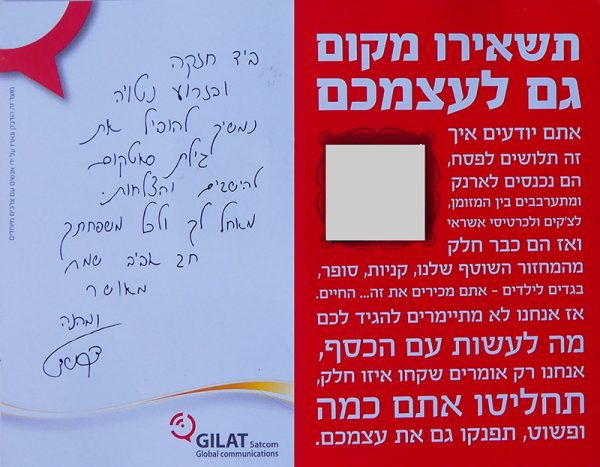 תשאירו מקום
גם לעצמכם
אתם יודעים איך
זה תלושים לפסח,
הם נכנסים לארנק
ומתערבבים בין המזומן,
לצ'קים ולכרטיסי אשראי
ואז הם כבר חלק
מהמחזור השוטף שלנו, קניות, סופר,
בגדים לילדים - אתם מכירים את זה... החיים.
אז אנחנו לא מתיימרים להגיד לכם
מה לעשות עם הכסף,
אנחנו רק אומרים שקחו איזו חלק,
תחליטו אתם כמה
ופשוט, תפנקו גם את עצמכם.
ביד חזקה
ובזרוע נטויה
נמשיך להוביל את
גילת סאטקום
להישגים והצלחות.
מאחל לך ולכל משפחתך
חג אביב שמח
מאושר
ומהנה
מוצר זה הודבק ונארז על ידי אנשים עם צרכים מיוחדים
GILAT Satcom
Global communications